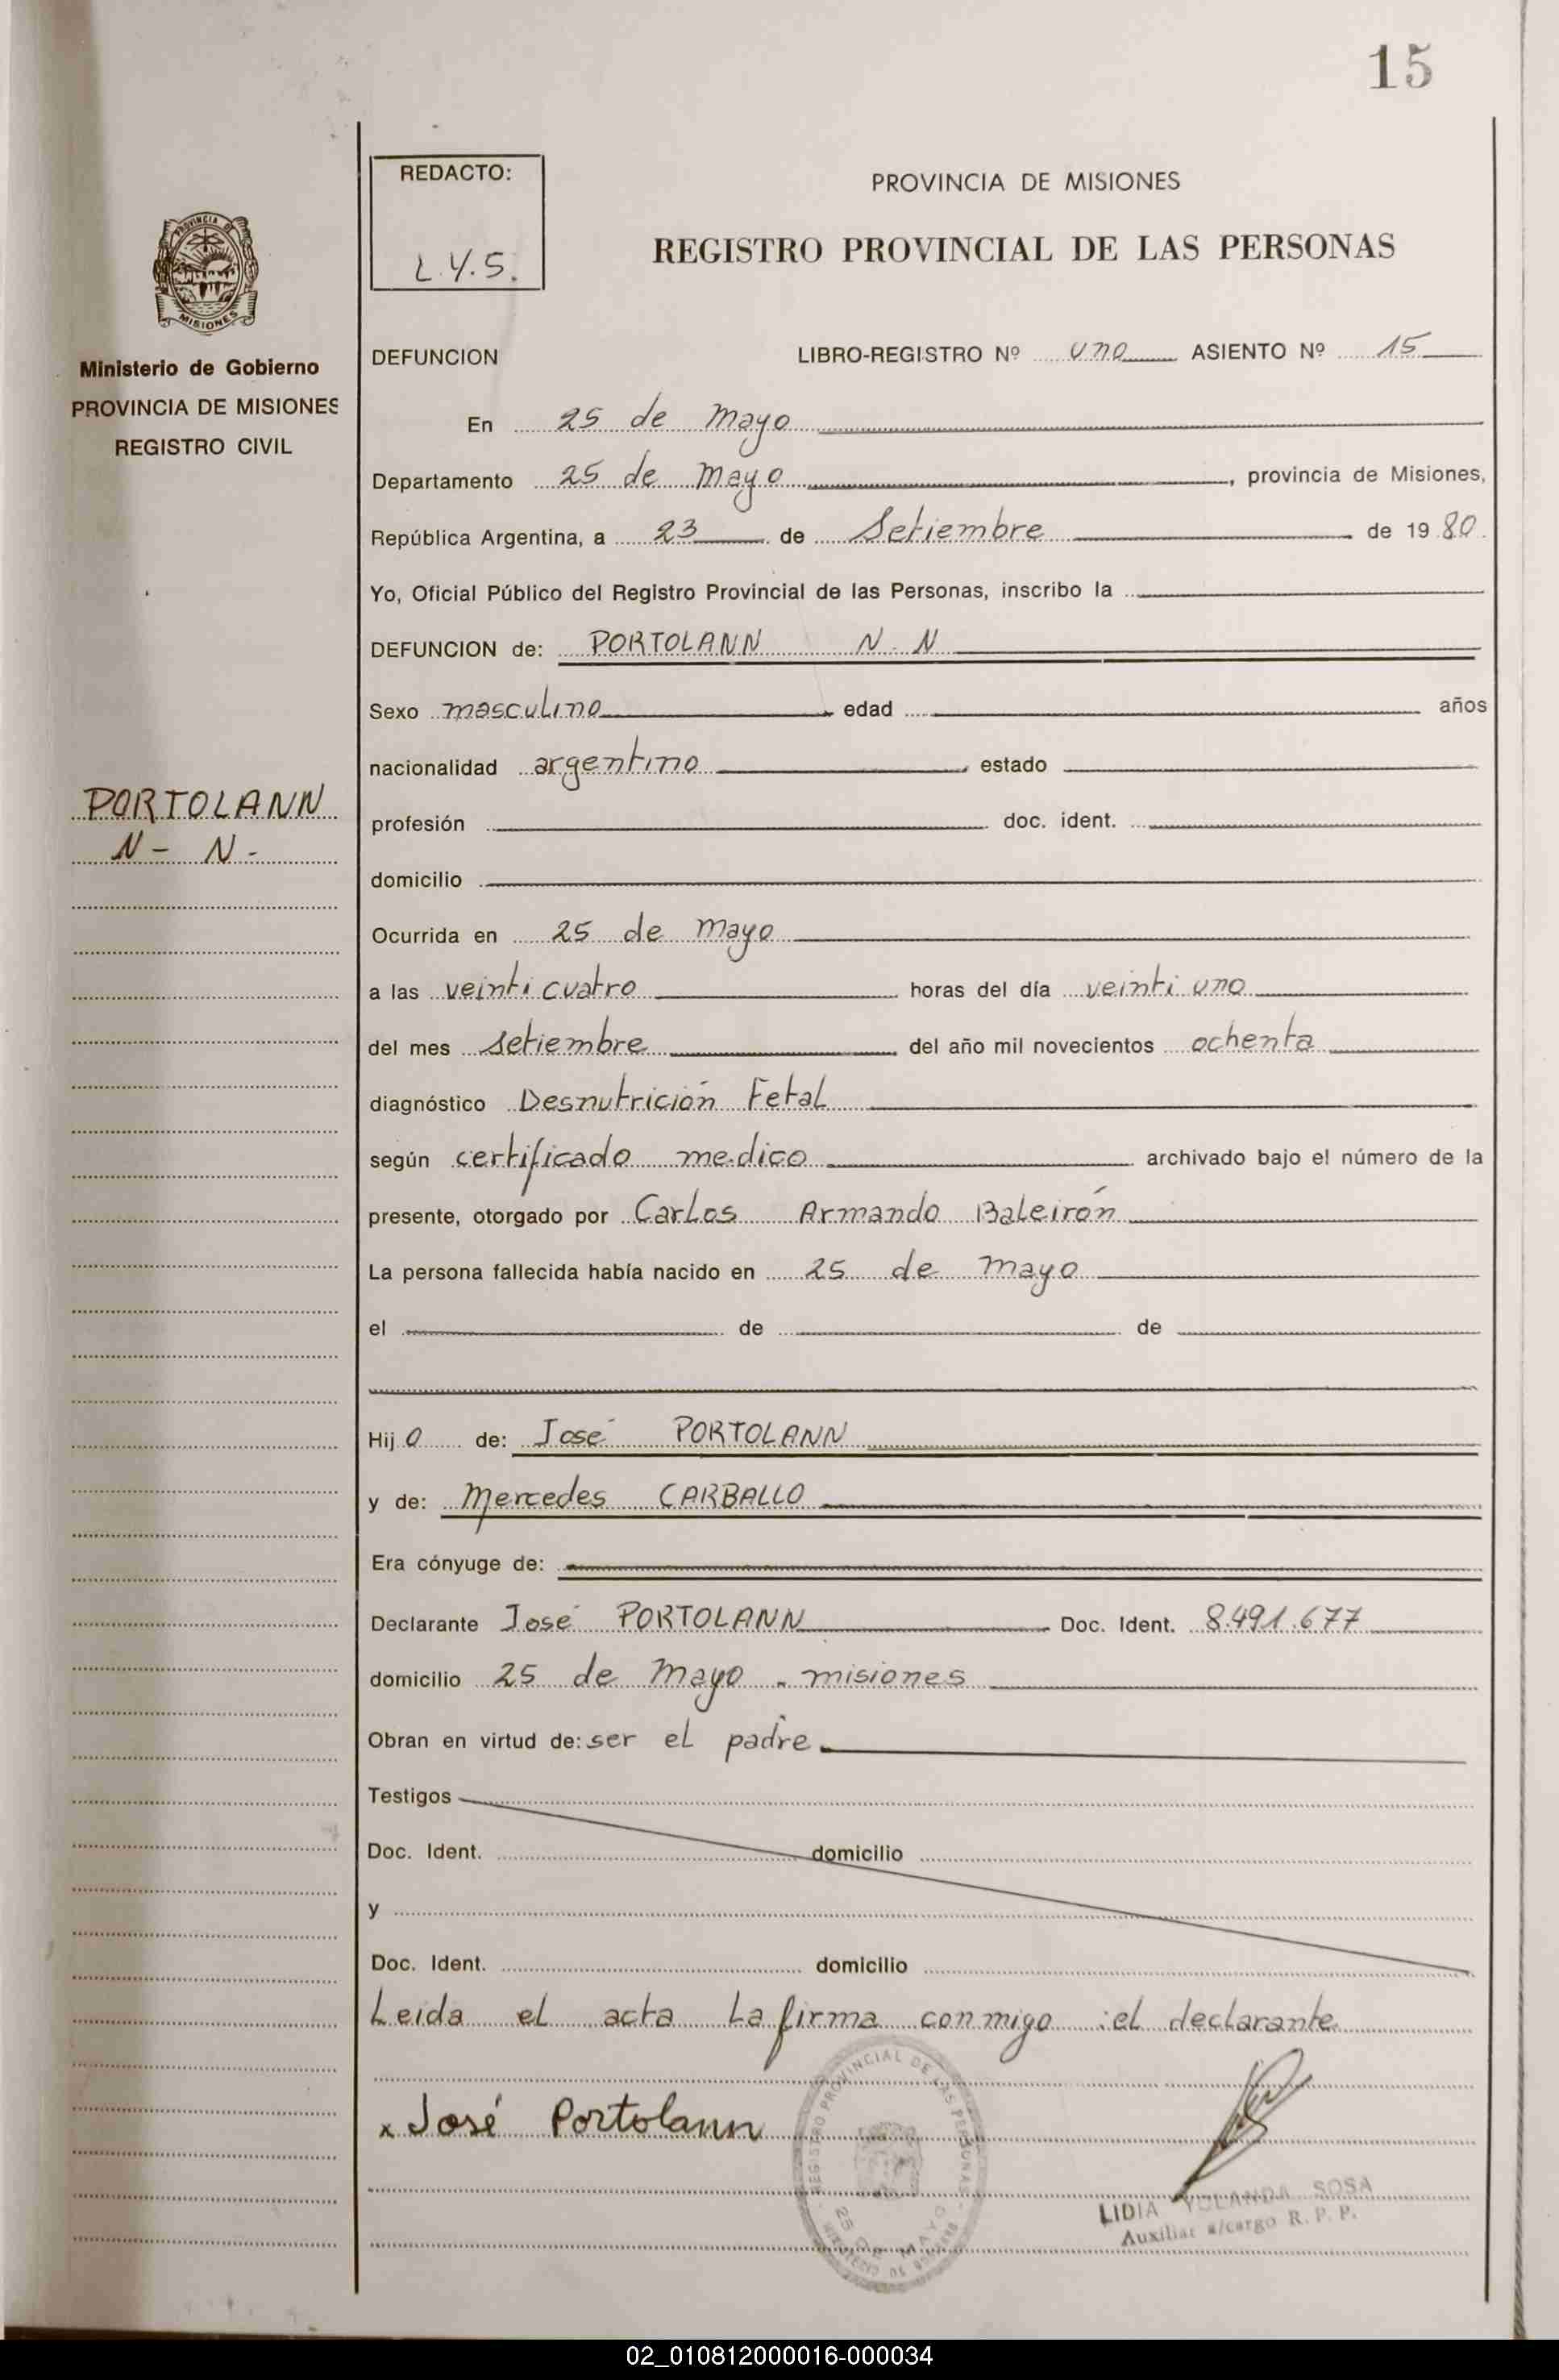 15
REDACTO:
L.Y.S.
PROVINCIA DE MISIONES
REGISTRO PROVINCIAL DE LAS PERSONAS
PROVINCIA DE
MISIONES
Ministerio de Gobierno
PROVINCIA DE MISIONES
REGISTRO CIVIL
DEFUNCION LIBRO-REGISTRO Nº uno ASIENTO Nº 15
En 25 de mayo
Departamento 25 de mayo, provincia de Misiones,
República Argentina, a 23 de Setiembre de 1980
Yo, Oficial Público del Registro Provincial de las Personas, inscribo la
DEFUNCION de: PORTOLANN N. N
Sexo masculino edad años
nacionalidad argentino, estado
PORTOLANN
N- N-
profesión doc. ident.
domicilio
Ocurrida en 25 de mayo
a las veinti cuatro horas del día veinti uno
del mes setiembre del año mil novecientos ochenta
diagnóstico Desnutrición Fetal
según certificado medico archivado bajo el número de la
presente, otorgado por Carlos Armando Baleirón
La persona fallecida había nacido en 25 de mayo
el de de
Hijo de: José PORTOLANN
y de: Mercedes CARBALLO
Era cónyuge de:
Declarante José PORTOLANN Doc. Ident. 8.491.677
domicilio 25 de mayo - misiones
Obran en virtud de: ser el padre
Testigos
Doc. Ident. domicilio
y
Doc. Ident. domicilio
Leida el acta la firma conmigo :el declarante
x José Portolann
REGISTRO PROVINCIAL DE LAS PERSONAS
25 DE MAYO
LIDIA YOLANDA SOSA
Auxiliar a/cargo R. P. P.
02_010812000016-000034